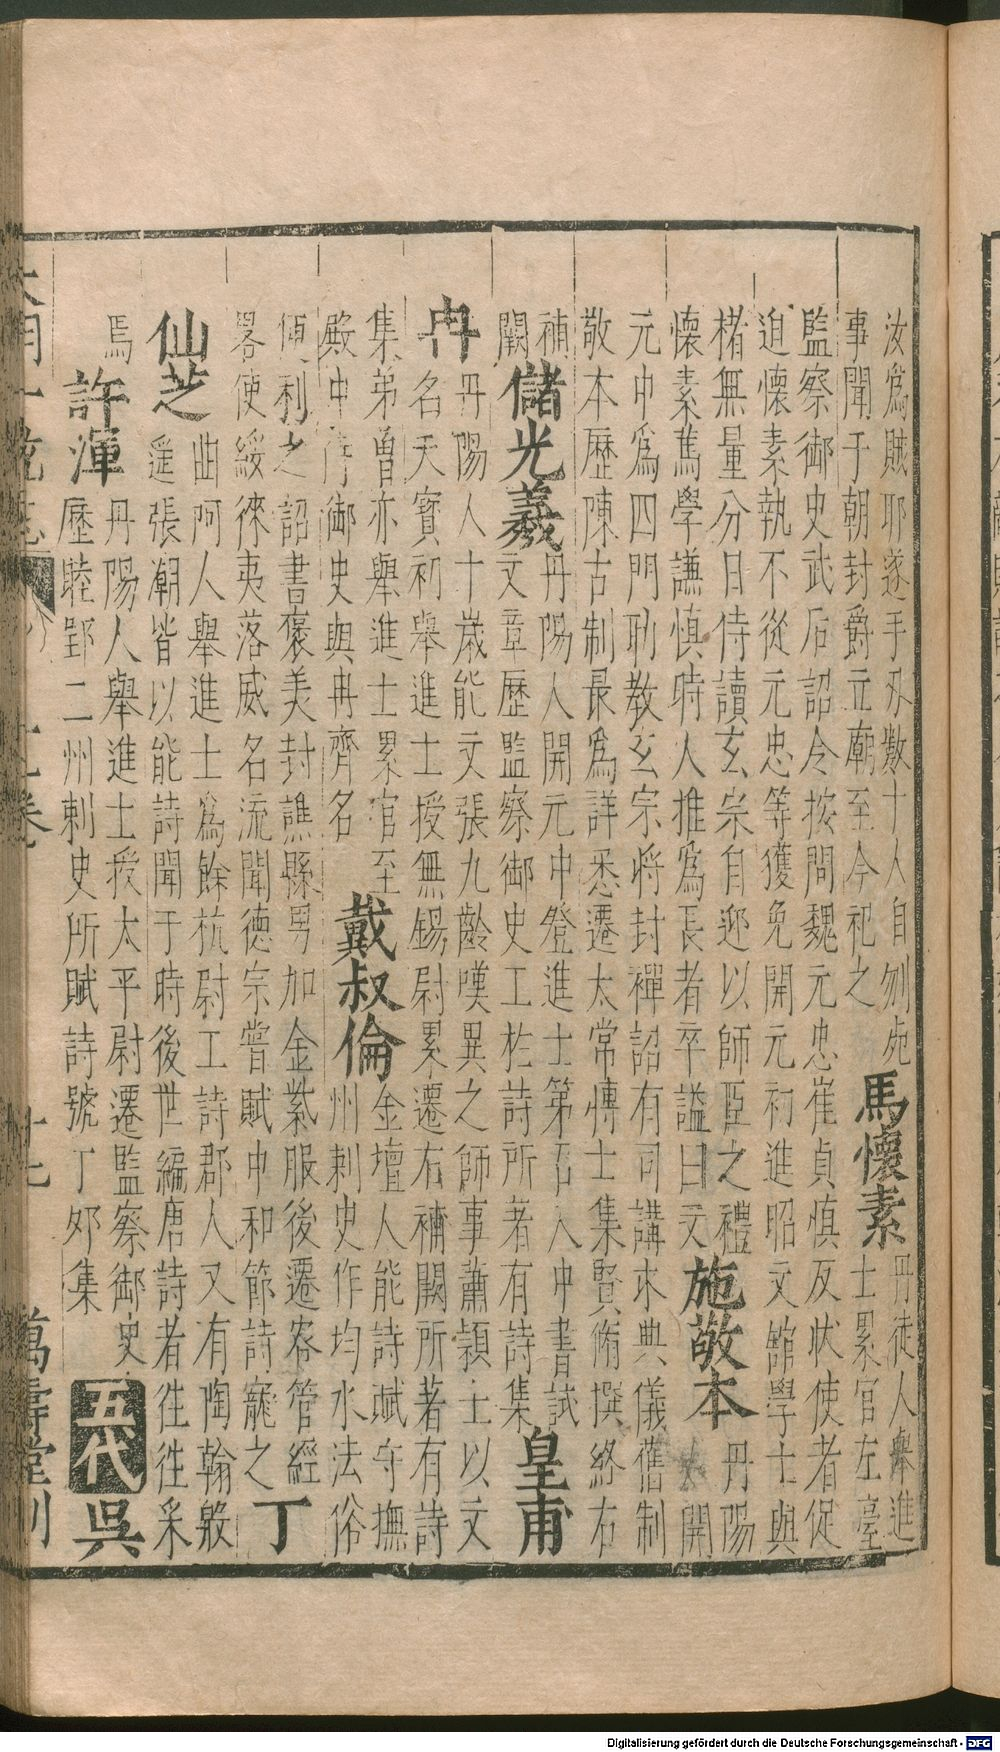 汝為賊耶遂手刃數十人自刎死
事聞于朝封爵立廟至今祀之
馬懷素
丹徒人舉進
士累官左臺
監察御史武后詔令按問魏元忠崔貞慎反狀使者促
迫懷素執不從元忠等獲免開元初進昭文舘學士與
楮無量分日侍讀玄宗自迎以師臣之禮
懷素篤學謙慎時人推為長者卒謚曰文
施敬本
丹陽
人開
元中為四門助教玄宗將封禪詔有司講求典儀舊制
敬本歷陳古制最為詳悉遷太常博士集賢脩撰終右
補
闕
儲光羲
丹陽人開元中登進士第召入中書試
文章歷監察御史工於詩所著有詩集
皇甫
冉
丹陽人十歲能文張九齡嘆異之師事蕭穎士以文
名天寶初舉進士授無錫尉累遷右補闕所著有詩
集弟曾亦舉進士累官至
殿中侍御史與冉齊名
戴叔倫
金壇人能詩賦守撫
州刺史作均水法俗
便利之詔書褒美封譙縣男加金紫服後遷容管經
畧使綏徠夷落威名流聞德宗嘗賦中和節詩寵之
丁
仙芝
曲阿人舉進士為餘杭尉工詩郡人又有陶翰殷
遥張潮皆以能詩聞于時後世編唐詩者往往采
焉
許渾
丹陽人舉進士授太平尉遷監察御史
歷睦郢二州刺史所賦詩號丁夘集
五代
吳
大明一統志 卷 十七 萬壽堂刊
Digitalisierung gefördert durch die Deutsche Forschungsgemeinschaft - DFG